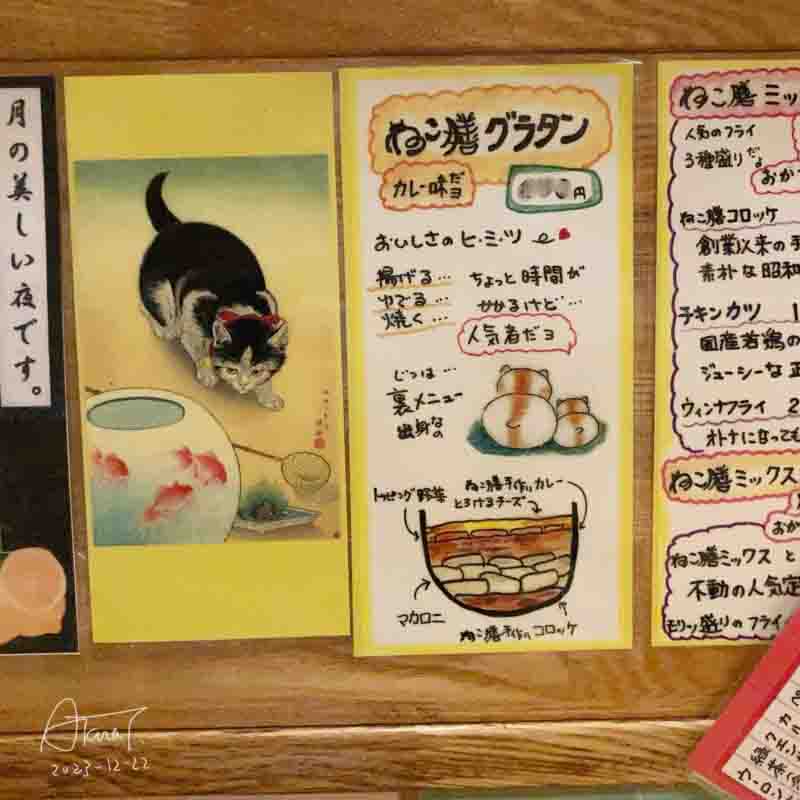 月の美しい夜です。
ねこ膳グラタン
カレー味だヨ
円
おいしさのヒ・ミ・ツ
揚げる… ちょっと時間が
ゆでる… かかるけど…
焼く…
人気者だヨ
じつは…
裏メニュー
出身なの
トッピング野菜
ねこ膳手作りカレー
とろけるチーズ
マカロニ
ねこ膳手作りコロッケ
ねこ膳ミッ
人気のフライ
3種盛りだよ
おか
ねこ膳コロッケ
創業以来の手
素朴な昭和
チキンカツ 1
国産若鶏の
ジューシーな正
ウィンナフライ 2
オトナになっても
ねこ膳ミックス
おか
ねこ膳ミックス と
不動の人気定
モリッ盛りのフライ
カル
ウーロン
2023-12-22